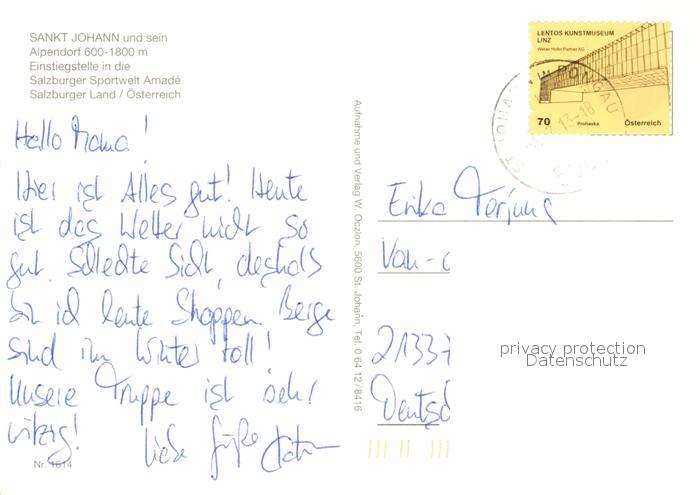 SANKT JOHANN und sein
Alpendorf 600-1800 m
Einstiegstelle in die
Salzburger Sportwelt Amadé
Salzburger Land / Österreich
Hallo Mama!
Hier ist Alles gut! Heute
ist das Wetter nicht so
gut. Schlechte Sicht, deshalb
bin ich heute Shoppen. Berge
sind im Winter toll!
Unsere Truppe ist sehr
witzig!
Liebe Grüße
Nr. 1614
Aufnahme und Verlag W. Oczlon, 5600 St. Johann, Tel. 0 64 12 / 8416
LENTOS KUNSTMUSEUM
LINZ
Weber Hofer Partner AG
70 Prohaska Österreich
ST. JOHANN IM PONGAU
Erika Terjung
Van-
21337
Deutsc
privacy protection
Datenschutz